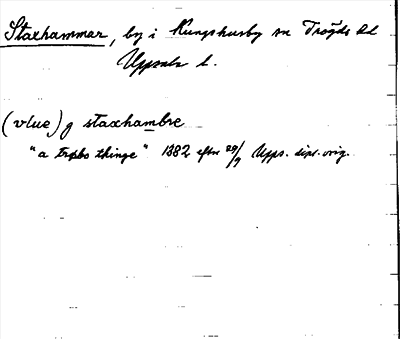 Staxhammar, by i Kungshusby sn Trögds hd
Uppsala l.
(vlue) g staxhambre
"a trøbo thinge" 1382 efter 29/9 Upps. dipl. orig.